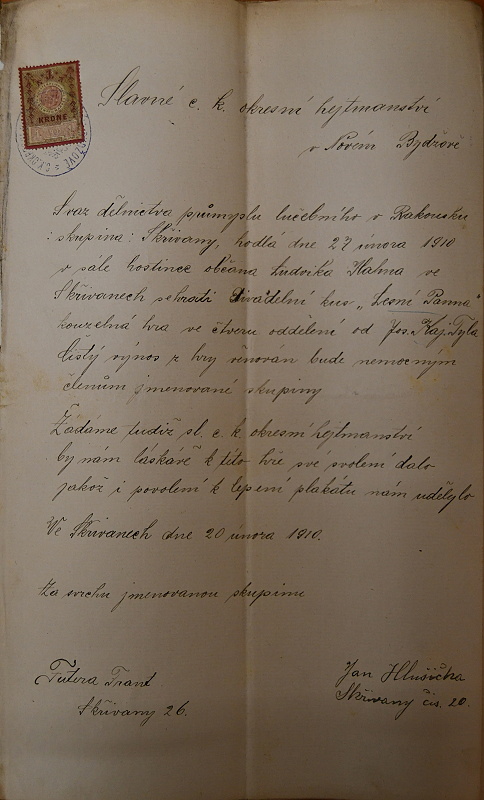 1
KRONE
Slavné c. k. okresní hejtmanství
v Novém Bydžově
Svaz dělnictva průmyslu lučebního v Rakousku
: skupina: Skřivany, hodlá dne 27 února 1910
v sále hostince občana Ludvíka Halma ve
Skřivanech sehráti divadelní kus „Lesní Panna"
kouzelná hra ve čtveru oddělení od Jos. Kaj. Tyla
čistý výnos z hry věnován bude nemocným
členům jmenované skupiny
Žádáme tudíž sl. c. k. okresní hejtmanství
by nám láskávě k této hře své svolení dalo
jakož i povolení k lepení plakátu nám udělylo
Ve Skřivanech dne 20 února 1910.
Za svrchu jmenovanou skupinu
Futera Frant
Skřivany 26.
Jan Hlušička
Skřivany čís. 20.